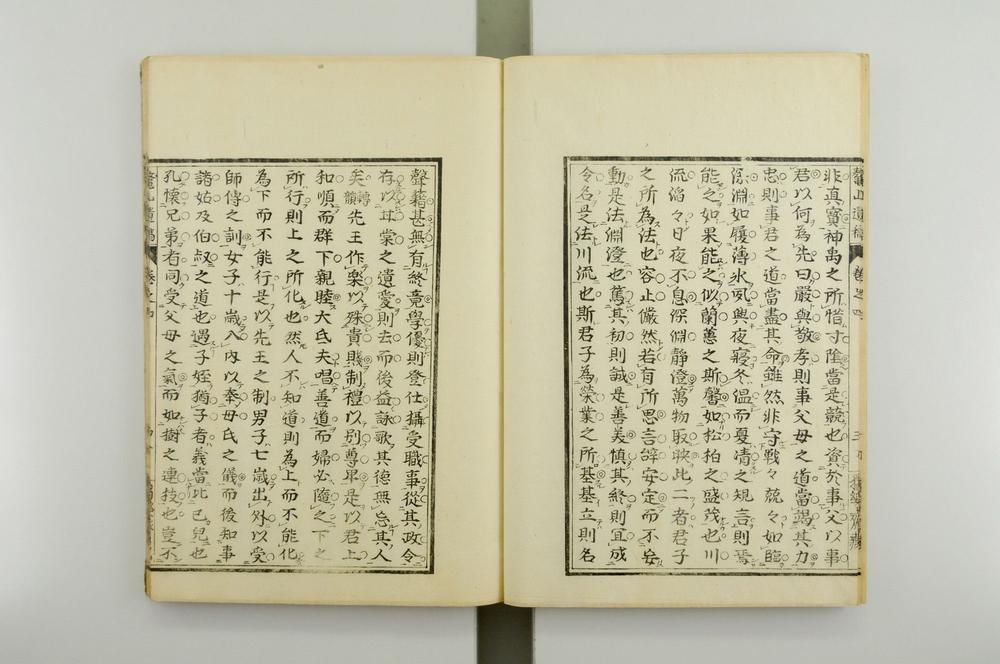 非真寶神禹之所惜寸陰當是競也資於事父以事
君以何為先曰嚴與敬孝則事父母之道當竭其力
忠則事君之道當盡其命雖然非守戰々兢々如臨
深淵如履薄氷夙興夜寢冬温而夏凊之規言則焉
能之如果能之似蘭蕙之斯馨如松柏之盛茂也川
流滔々日夜不息深淵靜澄萬物取映此二者君子
之所為法也容止儼然若有所思言辭安定而不妄
動是法淵澄也篤其初則誠是善美慎其終則宜成
令名是法川流也斯君子為榮業之所基基立則名
聲籍甚無有終竟學優則登仕攝受職事從其政令
存以甘棠之遺愛則去而後益詠歌其德無忘其人
矣轉韻先王作樂以殊貴賤制禮以別尊卑是以君上
和順而群下親睦大氐夫唱善道而婦必隨之下之
所行則上之所化也然人不知道則為上而不能化
為下而不能行是以先王之制男子七歲出外以受
師傅之訓女子十歲入內以奉母氏之儀而後知事
諸姑及伯叔之道也遇子姪猶子者義當比已兒也
孔懷兄弟者同受父母之氣而如樹之連技也豈不